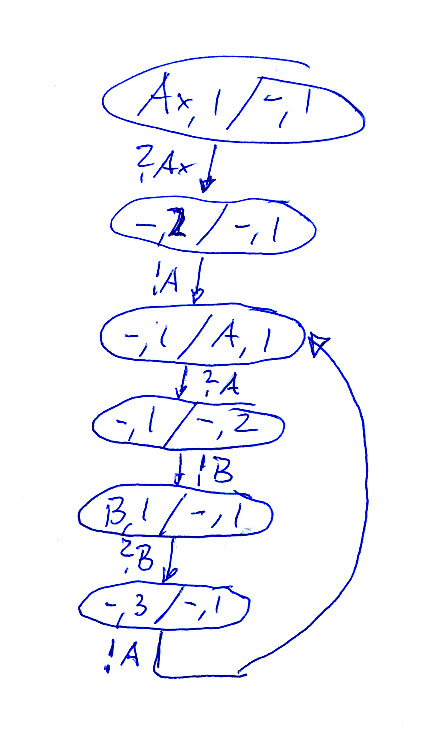 Ax, 1 / -, 1
?Ax
-, 2 / -, 1
!A
-, 1 / A, 1
?A
-, 1 / -, 2
!B
B, 1 / -, 1
?B
-, 3 / -, 1
!A